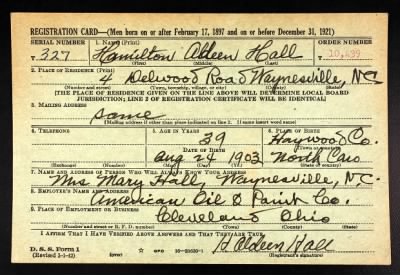 REGISTRATION CARD—(Men born on or after February 17, 1897 and on or before December 31, 1921)
SERIAL NUMBER 1. NAME (Print) ORDER NUMBER
T 327 Hamilton Aldeen Hall 10,439
(First) (Middle) (Last)
2. PLACE OF RESIDENCE (Print)
4 Delwood Road Waynesville, N.C.
(Number and street) (Town, township, village, or city) (County) (State)
[THE PLACE OF RESIDENCE GIVEN ON THE LINE ABOVE WILL DETERMINE LOCAL BOARD
JURISDICTION; LINE 2 OF REGISTRATION CERTIFICATE WILL BE IDENTICAL]
3. MAILING ADDRESS
same
[Mailing address if other than place indicated on line 2. If same insert word same]
4. TELEPHONE 5. AGE IN YEARS 6. PLACE OF BIRTH
39 Haywood Co.
DATE OF BIRTH (Town or county)
Aug 24 1902 North Caro
(Exchange) (Number) (Mo.) (Day) (Yr.) (State or country)
7. NAME AND ADDRESS OF PERSON WHO WILL ALWAYS KNOW YOUR ADDRESS
Mrs. Mary Hall, Waynesville, N.C.
8. EMPLOYER'S NAME AND ADDRESS
American Oil & Paint Co.
9. PLACE OF EMPLOYMENT OR BUSINESS
Cleveland Ohio
(Number and street or R. F. D. number) (Town) (County) (State)
I AFFIRM THAT I HAVE VERIFIED ABOVE ANSWERS AND THAT THEY ARE TRUE.
D. S. S. Form 1
(Revised 1-1-42) H Aldeen Hall